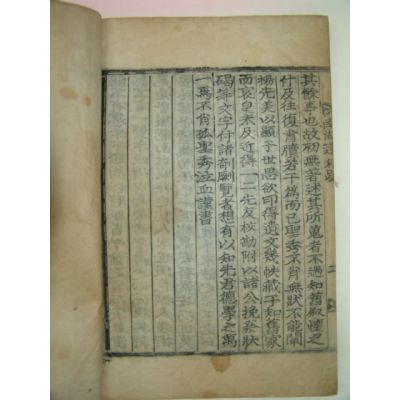 其餘事也故初無著述其所蒐者不過知舊之
什及往復書牘若干篇而已聖秀不肖無狀不能闡
揚先美以顯于世愚欲印得遺文幾帙藏于知舊家
而哀皇未及近得一二先友校勘附以諸公挽祭狀
碣等文字付諸剞劂覽者想有以知先君德學之萬
一焉不肖孤聖秀泣血謹書